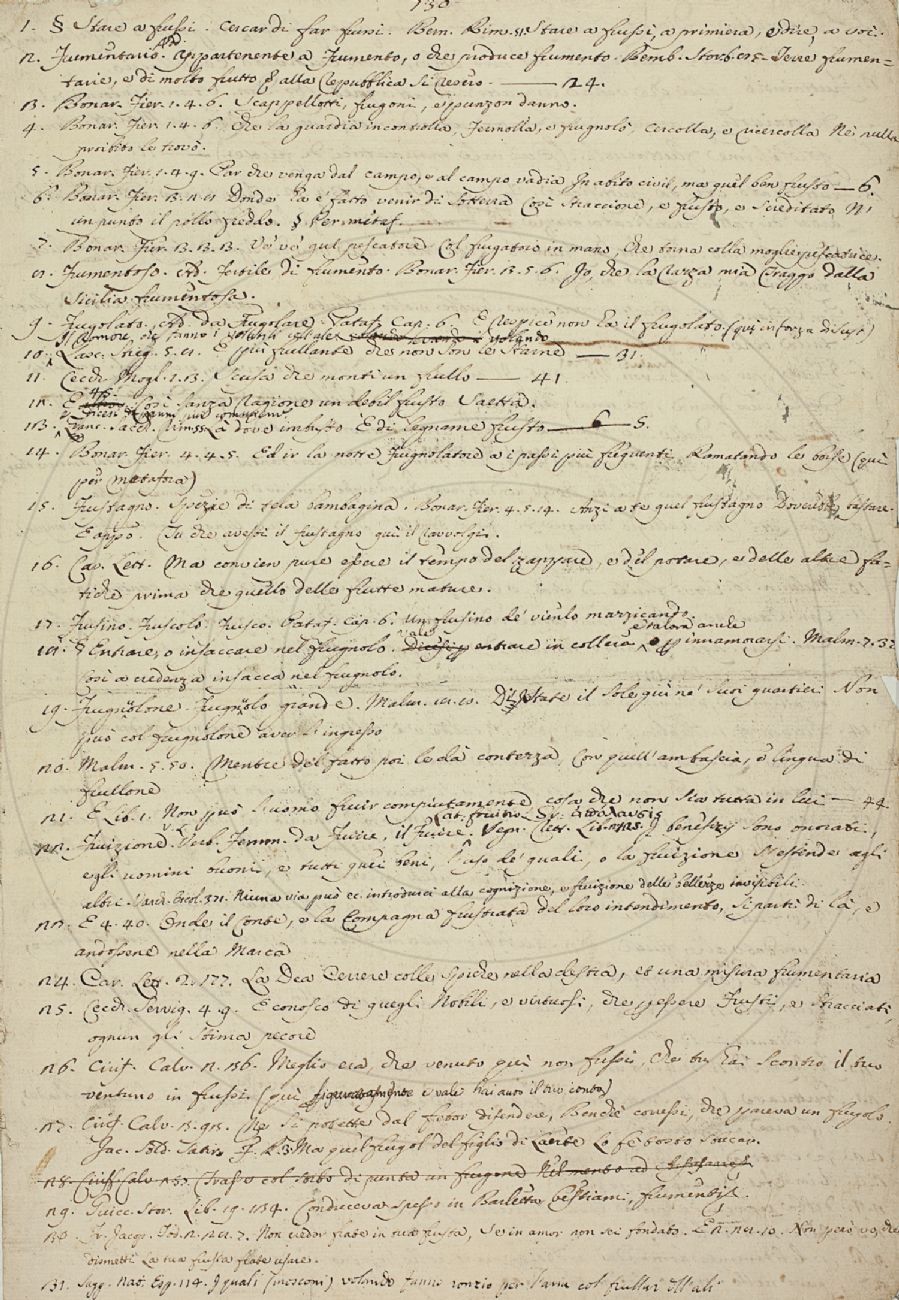 130
1. § Stare a frussi. Cercar di far frussi. Bern. Rim. Stare a frussi, a primiera, e dire, a voi.
2. Frumentario. Add. Appartenente a Frumento, o che produce frumento. Bemb. Stor. Terre frumen=
tarie, e di molto frutto alla Repubblica si resero. ——— 24.
3. Bonar. Fier. 1. 4. 6. Scappellotti, frugoni, e punzon danno.
4. Bonar. Fier. 1. 4. 6. Che la guardia incontrolla, Fermolla, e frugnolò, cercolla, e ricercolla Nè nulla
proibito le trovò.
5. Bonar. Fier. 1. 4. 9. Par che venga dal campo, e al campo vadia In abito civil, ma quel ben frusto — 6.
6. Bonar. Fier. Donde l'à fatto venir di sotterra Così straccione, e frusto, e screditato
un punto il pollo freddo. § Per metaf.
7. Bonar. Fier. 3. 3. 3. Ve' ve' quel pescatore Col frugatoio in mano, Che torna colla moglie pescatrice.
8. Frumentoso. Add. Fertile di frumento. Bonar. Fier. 3. 5. 6. Io, che la Curza mia traggo dalla
Sicilia frumentosa.
9. Frugolato. Add. da Frugolare. Pataf. Cap. 6. E rispice non ha il frugolato. (qui in forza di sust)
Il romore, che fanno volando
10. Lasc. Streg. 5. 8. E più frullante che non son le starne — 31.
11. Cecch. Mogl. 1. 3. Scusa che monti un frullo ——— 41.
12. E 45. Così sanza ragione un debil frusto Saetta.
13. Franc. Sacch. Rim. Là dove imbusto E di legname frusto — 6 — 5.
14. Bonar. Fier. 4. 4. 5. Ed ir la notte Frugnolatore a i passi più frequenti Ramatando le borse (qui
per metafora)
15. Frustagno. Spezie di tela bambagina. Bonar. Fier. 4. 5. 14. Anzi a te quel frustagno Dovevi tastare.
E appo. Tu che avesti il frustagno qui il ravvolgi.
16. Car. Lett. Ma convien pure essere il tempo del zappare, e del potare, e delle altre fa=
tiche prima che quello delle frutte mature.
17. Frusino. Fruscolo. Frusco. Pataf. Cap. 6. Un frusino de' vienlo marzicando
e talora anche
18. § Entrare, o insaccare nel frugnolo. vale entrare in collera, innamorarsi. Malm. 7. 32
Così a credenza insacca nel frugnolo.
19. Frugnolone. Frugnolo grande. Malm. State il Sole qui ne' suoi quartieri Non
può col frugnolone aver l'ingresso
20. Malm. 5. 50. Mentre del fatto poi le dà contezza, Con quell'ambascia, e lingua di
frullone
21. E Lib. 1. Non può l'uomo fruir compiutamente cosa che non sia tutta in lui — 44
Lat. fruitio. Gr. ἀπόλαυσις
22. Fruizione. Verb. Femm. da Fruire, il Fruire. Segn. Rett. Lib. I benefizj sono onorati
egli uomini buoni, e tutti quei beni, l'uso de' quali, o la fruizione s'estende agli
altri. Varch. Ercol. 321. Niuna via può ec. introdurci alla cognizione, e fruizione delle bellezze invisibili.
23. E 4. 40. Onde il Conte, e la Compagna frustrata del loro intendimento, si partì di là, e
andossene nella Marca
24. Car. Lett. 2. 177. La Dea Cerere colle spiche nella destra, et una misura frumentaria
25. Cecch. Servig. 4. 9. E conosco di quegli Nobili, e virtuosi, che essere Frusti, e stracciati
ognun gli stima pecore
26. Ciriff. Calv. 2. 36. Meglio era, che venuto qui non fussi, Che tu hai scontro il tuo
venturo in frussi. (qui figuratamente e vale hai auto il tuo conto)
27. Ciriff. Calv. 3. Nè si potette dal furor difendere, Benchè corressi, che pareva un frugolo.
Jac. Sold. Satir. Ma quel frugol del figlio di Laerte Lo fe' tosto
28. Ciriff. Calv. Trasse col sorbo di punta un frugone Nel mento ad
29. Guicc. Stor. Lib. 19. 134. Conduceva spesso in Barletta bestiami, frumenti.
30. Fr. Jacop. Tod. Non creder frate in tua frusta, Se in amor non sei fondato. E 2. Non però vo, che
dismetti La tua frusta frate usare.
31. Sagg. Nat. Esp. 114. I quali (mosconi) volando fanno ronzio per l'aria col frullar dell'ali